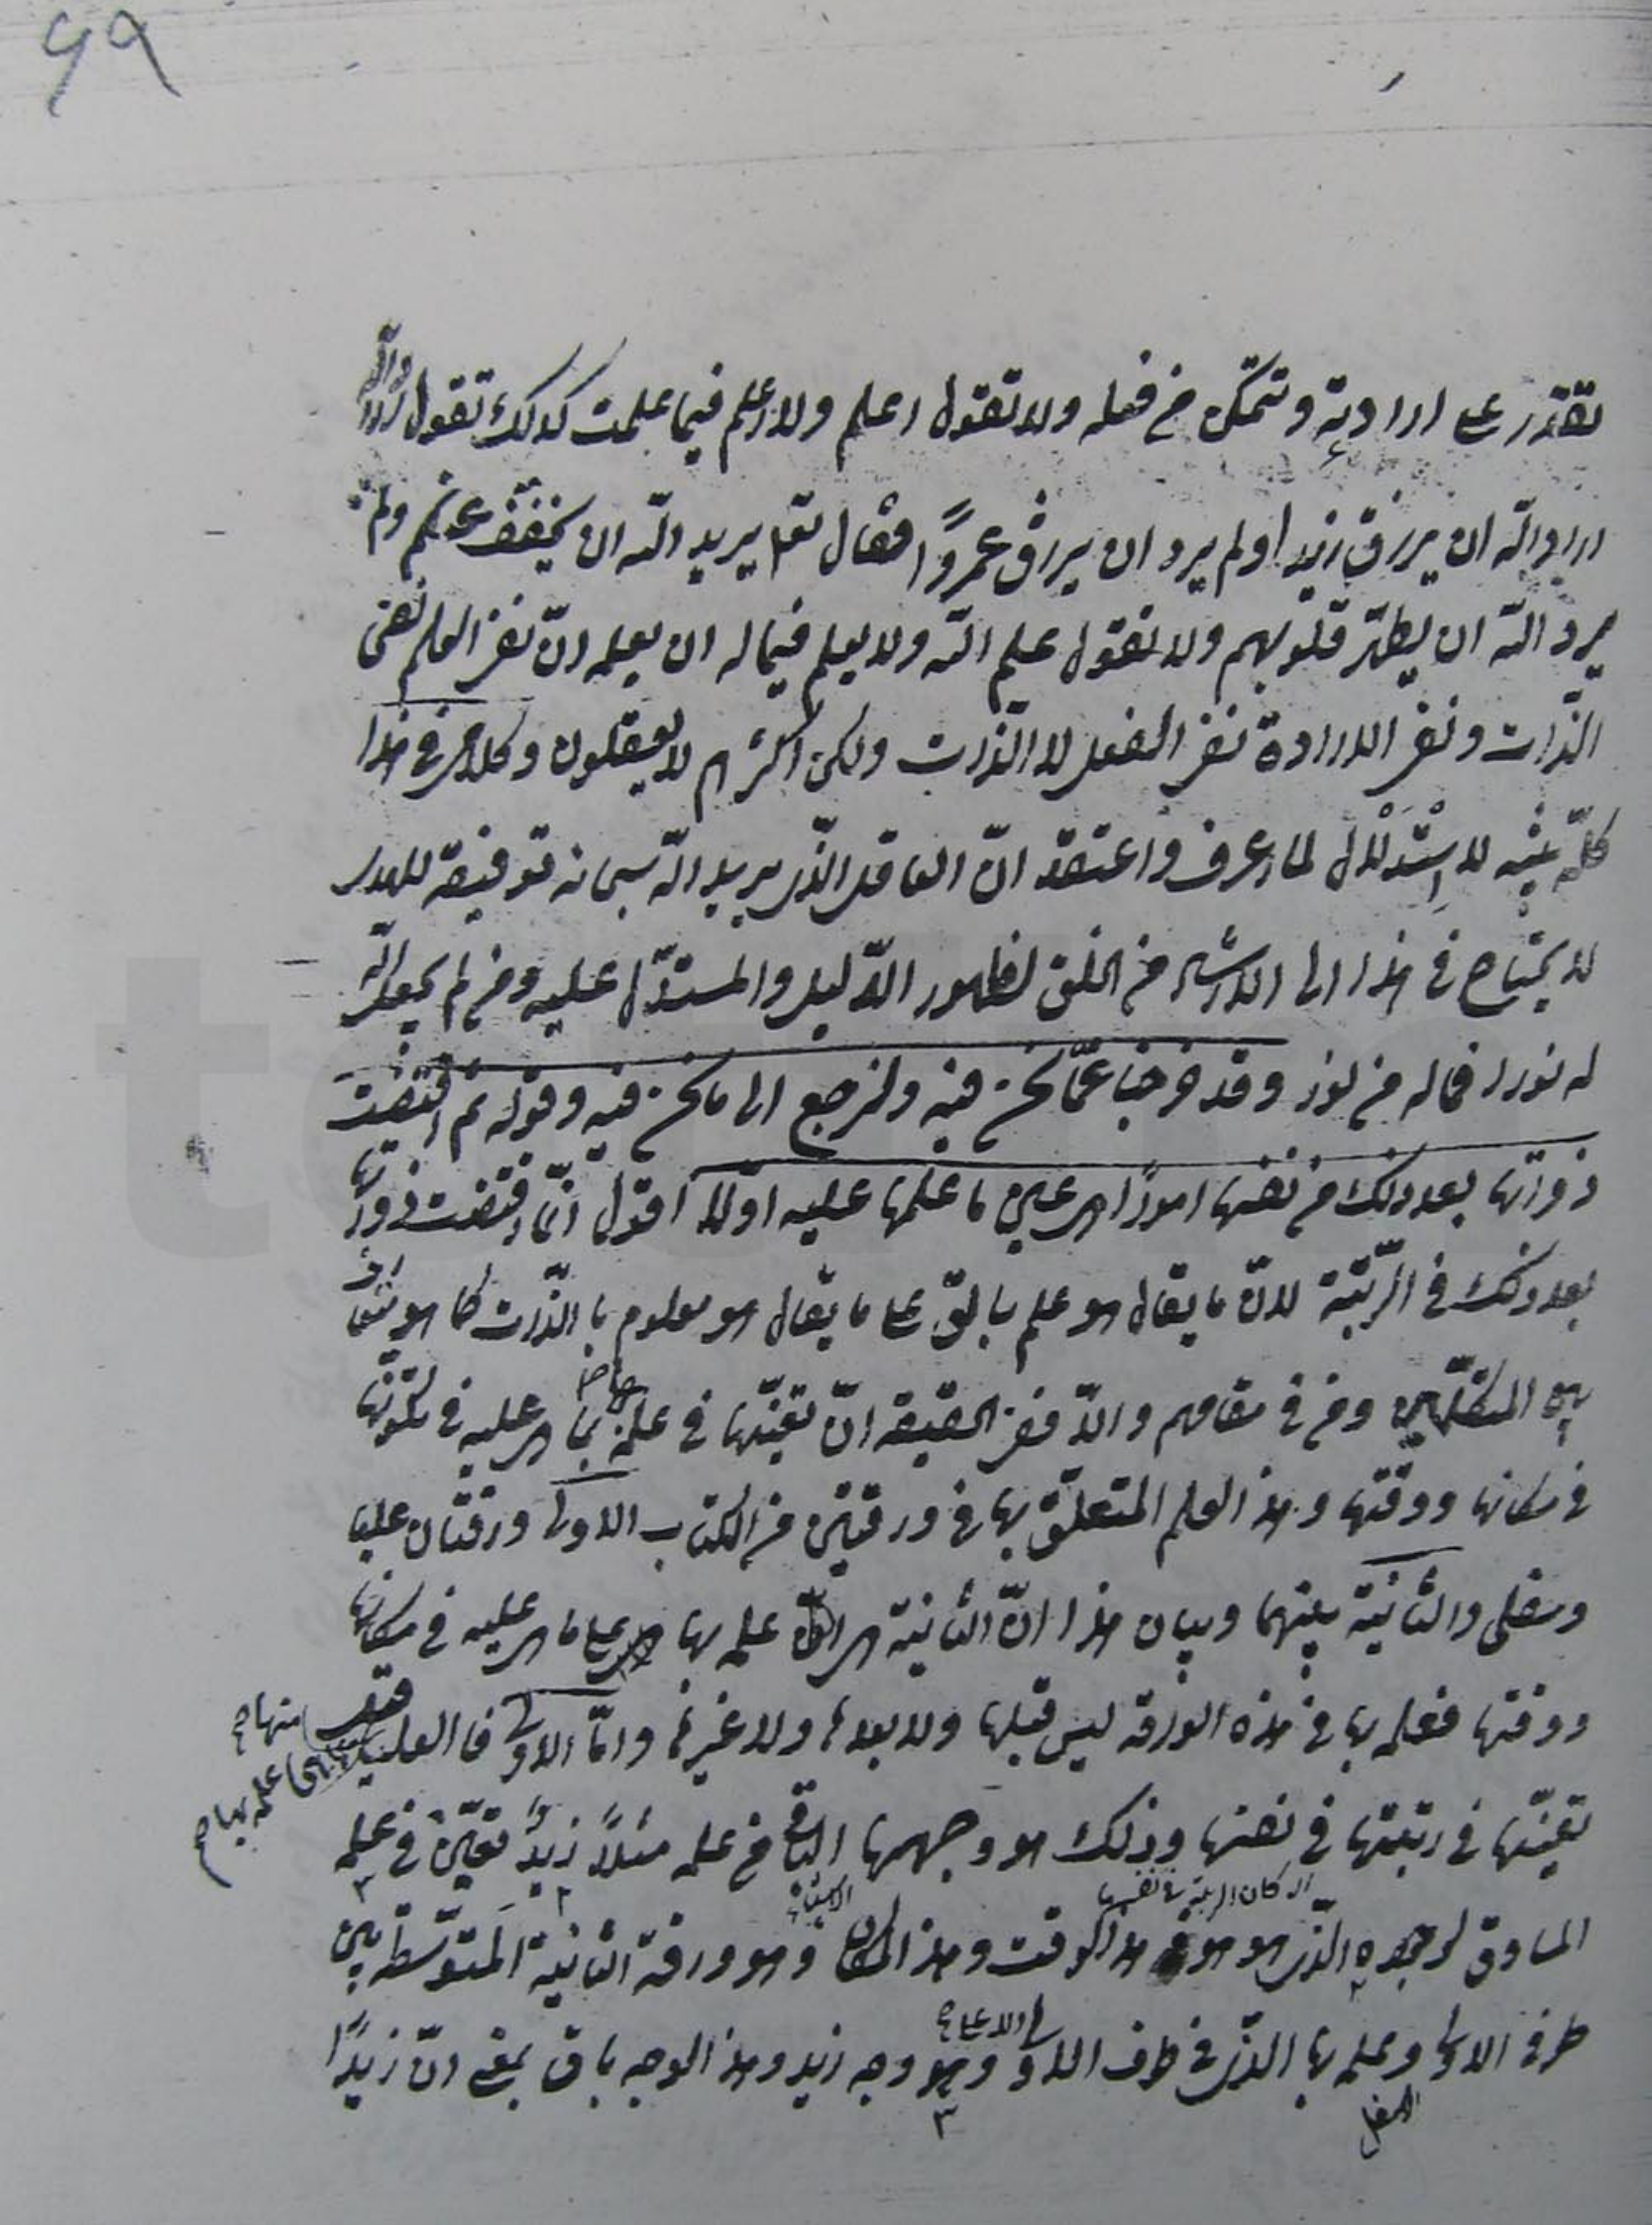 ٦٩
تقتدر على ارادته وتتمكن من فعله ولا تقول اعلم ولا اعلم فيما علمت كذلك تقول
اراد الله ان يرزق زيدا ولم يرد ان يرزق عمرًوا فقال تع يريد الله ان يخفف عنكم ولم
يرد الله ان يطهّر قلوبهم ولا تقول علم الله ولا يعلم فيما له ان يعلمه لانّ نفى العلم نفى
الذّات ونفى الارادة نفى الفعل لا الذّات ولكن اكثرهم لا يعقلون وكلامى فى هذا
كلّه تنبيه لا اِسْتدلال لما اعرف واعتقد انّ العاقل الذّى يريد الله سبحانه توفيقه للهدى
لا يحتاج فى هذا الى الاشارة من الخلق لظهور الدّليل والمستدّل عليه ومن لم يجعل الله
له نورا فما له من نور وقد خرجنا عمّا نحن فيه ولنرجع الى ما نحن فيه وقوله ثم اقتضت
ذواتها بعد ذلك من نفسها امورًا هى عين ما علمها عليه اوّلا اقول انّما اقتضت ذواتها
بعد ذلك فى الرّتبة لانّ ما يقال هو علم بالحق على ما يقال هو معلوم بالذّات كما هو شأن
بين المتكلّمين ومن فى مقامهم والّا ففى الحقيقة انّ تعيّنها فى علمه بها بما هى عليه فى تكوّنها
فى مكانها ووقتها وهذا العلم المتعلّق بها فى ورقتين من الكتاب الاولى ورقتان عليا
وسفلى والثانية بينهما وبيان هذا انّ الثانية هى علمه بها على ما هى عليه فى مكانها
ووقتها فعلمه بها فى هذه الورقة ليس قبلها ولا بعدها ولا غيرها وامّا الاولى فالعليا منها
علمه بها
تعيّنها فى رتبتها فى نفسها وذلك هو وجهها الباقى من علمه مثلًا زيدٌ تعيّن فى علمه
المساوق لوجوده الذّى هو هو فى هذا الوقت وهذا المكان وهو ورقة الثانية المتوسّطة بين
طرفى الاولى وعلمه بها الذّى فى طرف الاولى الاعلى وهو وجه زيد وهذا الوجه باق بمعنى انّ زيدًا